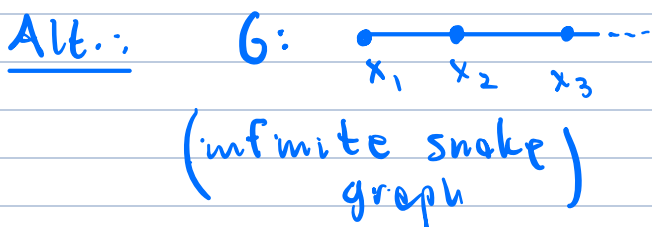 Alt.: G:
x₁ x₂ x₃
(infinite snake
graph)